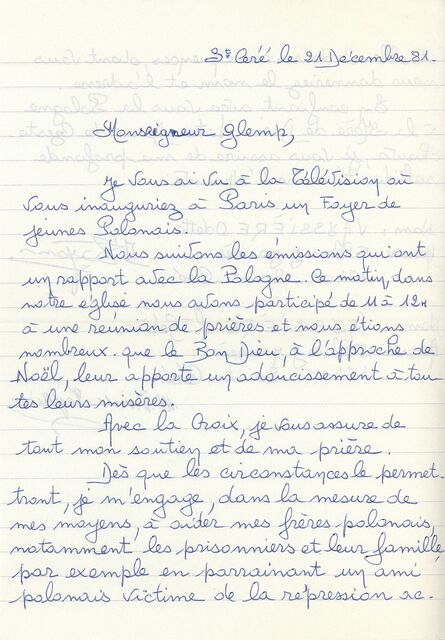 St Céré le 21 Décembre 81.
Monseigneur Glemp,
Je vous ai vu à la Télévision où
vous inauguriez à Paris un Foyer de
jeunes Polonais.
Nous suivons les émissions qui ont
un rapport avec la Pologne. Ce matin, dans
notre église nous avons participé de 11 à 12H
à une réunion de prières et nous étions
nombreux. que le Bon Dieu, à l'approche de
Noël, leur apporte un adoucissement à tou
tes leurs misères.
Avec la Croix, je vous assure de
tout mon soutien et de ma prière.
Dès que les circonstances le permet
tront, je m'engage, dans la mesure de
mes moyens, à aider mes frères polonais,
notamment les prisonniers et leur famille,
par exemple en parrainant un ami
polonais victime de la répression ac.